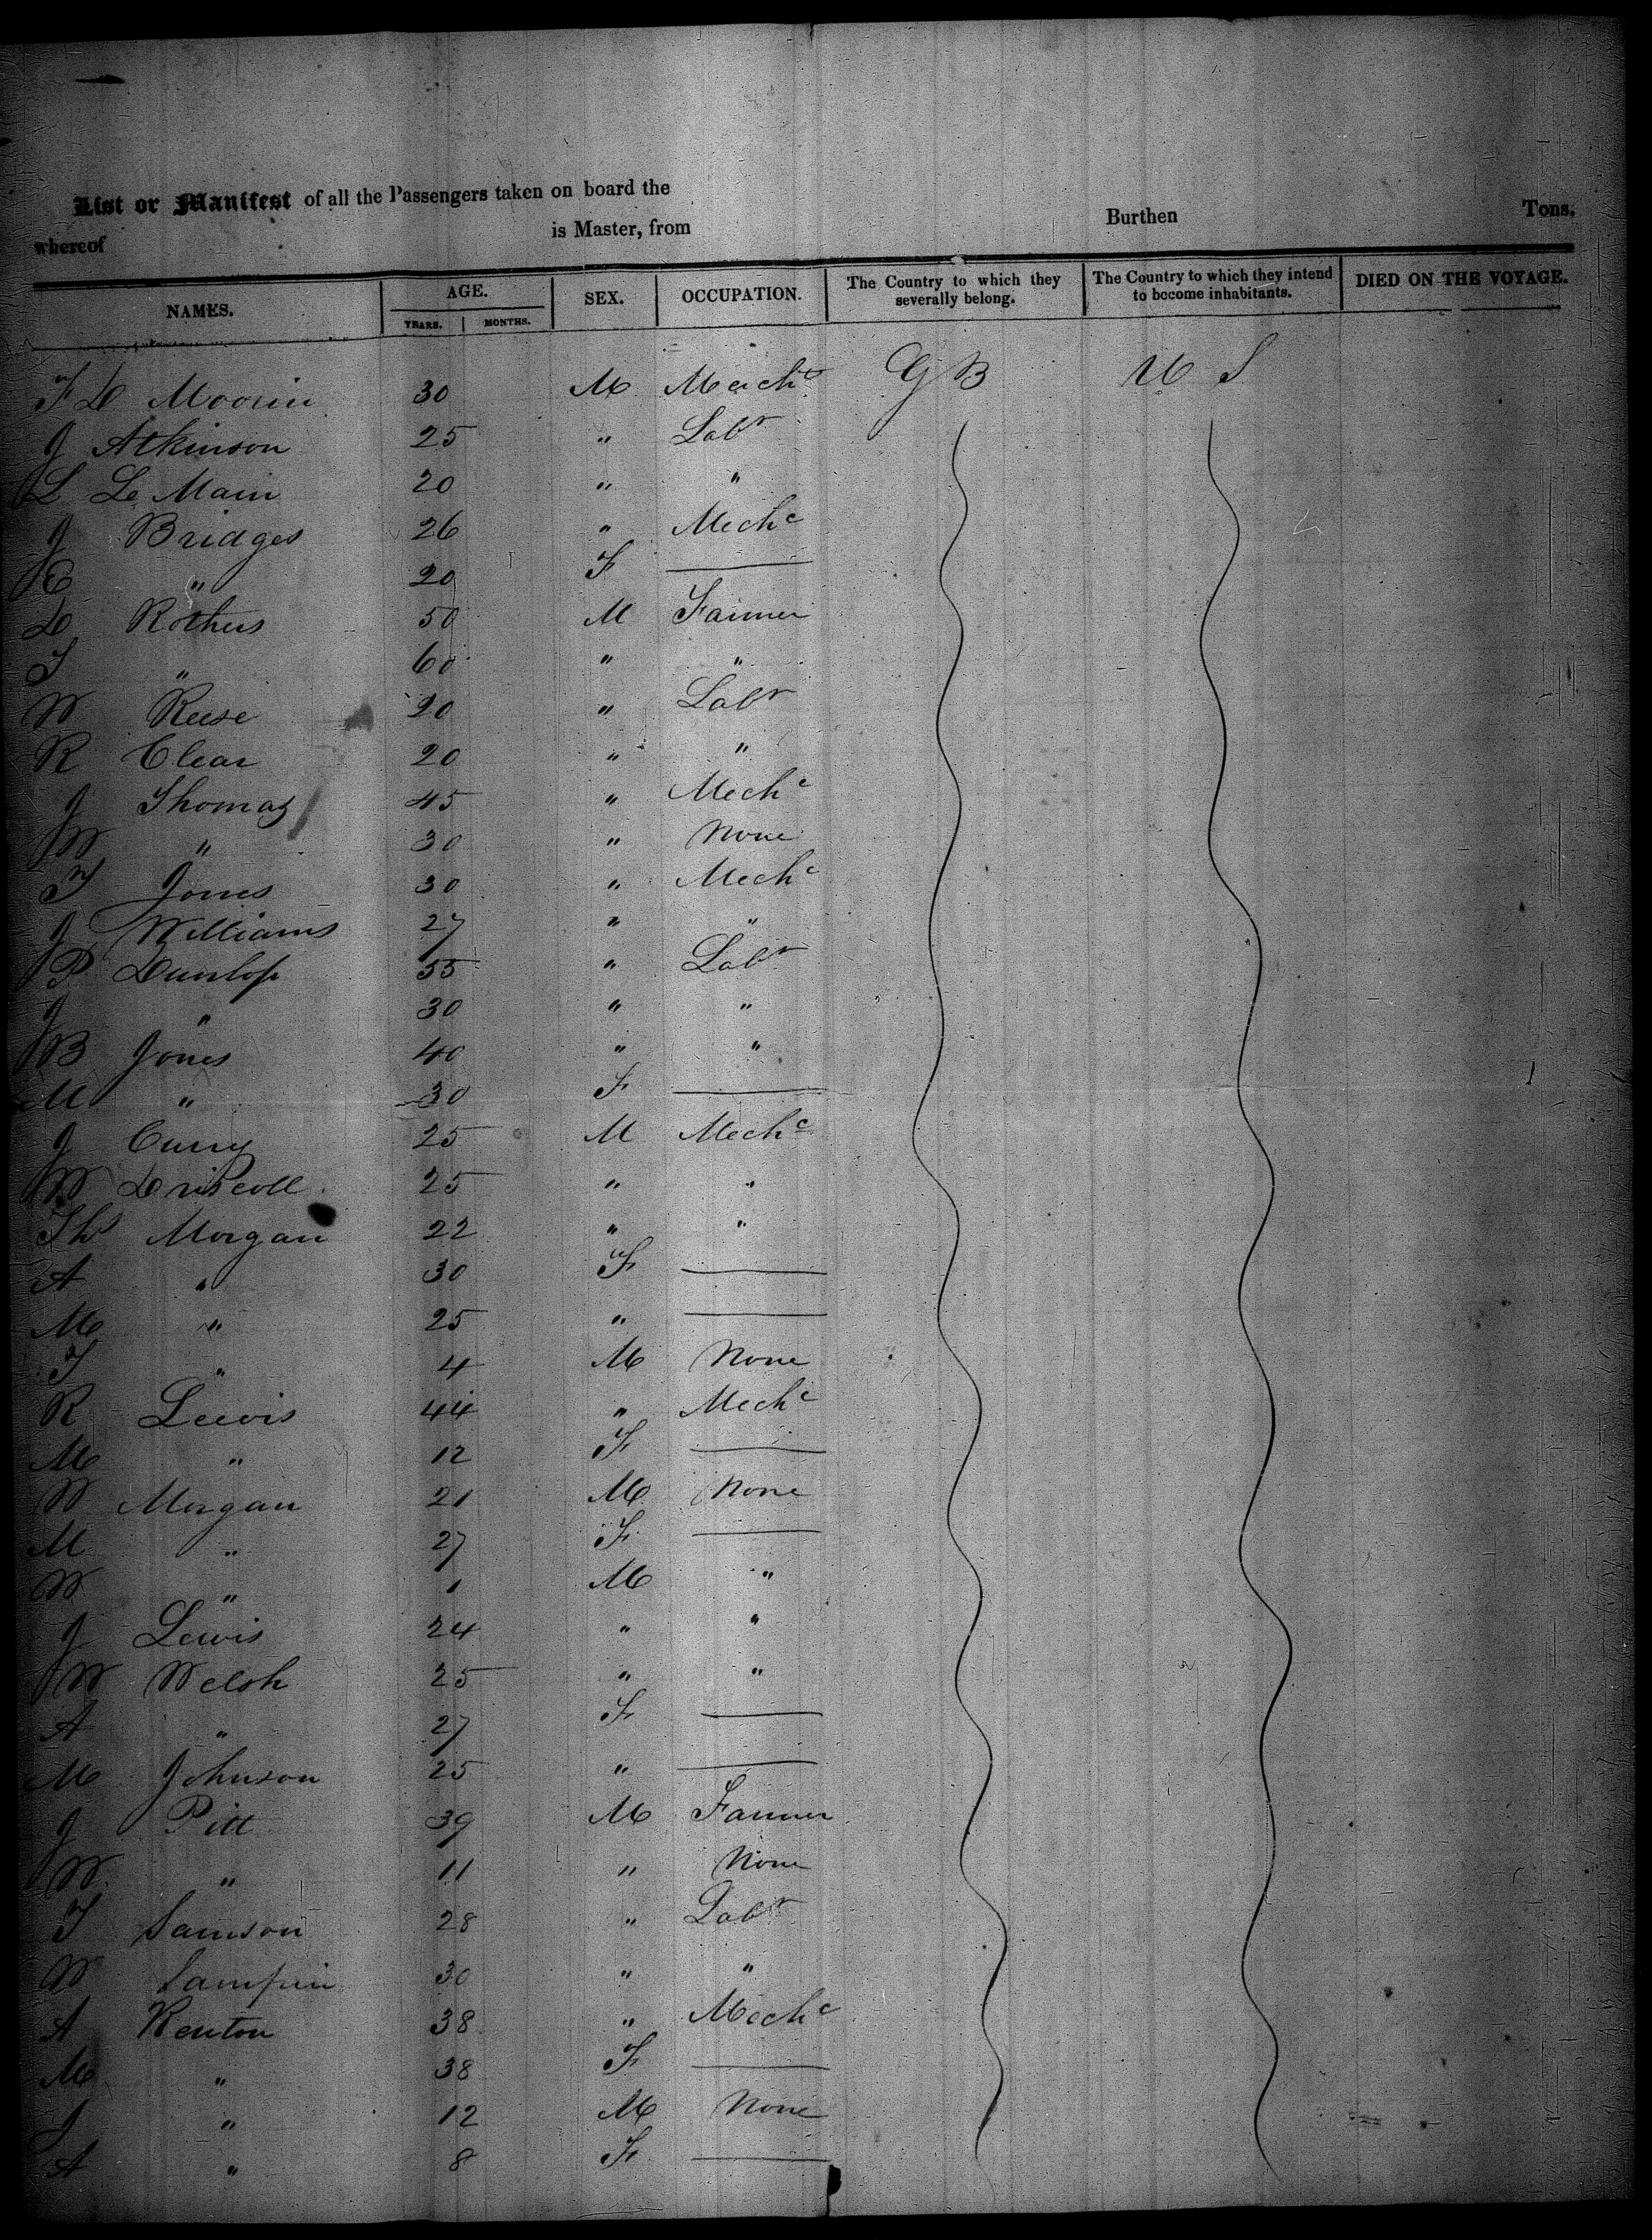 List or Manifest of all the Passengers taken on board the
whereof is Master, from Burthen Tons.
NAMES. AGE. YEARS. MONTHS. SEX. OCCUPATION. The Country to which they severally belong. The Country to which they intend to become inhabitants. DIED ON THE VOYAGE.
30 M Mercht G B U S
J Atkinson 25 " Labr
L Le Main 20 " "
J Bridges 26 " Mechc
E " 20 F
D Rothers 50 M Farmer
T " 60 " "
W Reese 20 " Labr
R Clear 20 " "
J Thomas 45 " Mechc
W " 30 " None
T Jones 30 " Mechc
J Williams 27 " "
P Dunlop 55 " Labr
J " 30 " "
B Jones 40 " "
M " 30 F
J Curry 25 M Mechc
W Driscoll 25 " "
Ths Morgan 22 " "
A " 30 F
M " 25 "
T " 4 M None
R Lewis 44 " Mechc
M " 12 F
W Morgan 21 M None
M " 27 F
W " 1 M "
J Lewis 24 " "
W Welsh 25 " "
A " 27 F
M Johnson 25 "
J Pitt 39 M Farmer
W " 11 " None
T Samson 28 " Labr
W 30 " "
A Renton 38 " Mechc
M " 38 F
J " 12 M None
A " 8 F